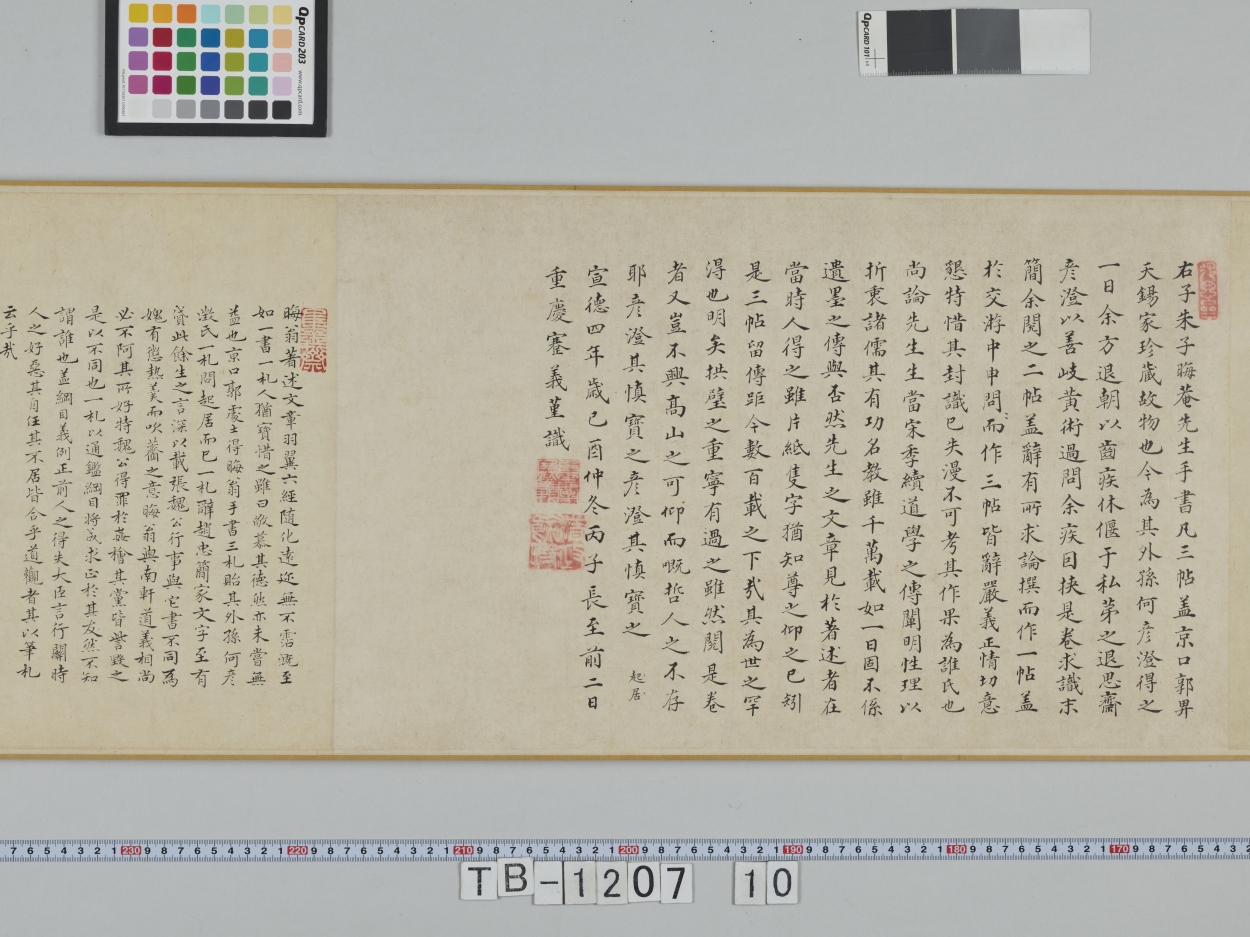 右子朱子晦菴先生手書凡三帖盖京口郭畀
天錫家珍蔵故物也今為其外孫何彦澄得之
一日余方退朝以齒疾休偃于私苐之退思齋
彦澄以善岐黄術過問余疾因挟是卷求識末
簡余閱之二帖盖辭有所求論撰而作一帖盖
於交游中申問而作三帖皆辭嚴義正情切意
懇特惜其封識已失漫不可考其作果為誰氏也
尚論先生生當宋季續道學之傳闡明性理以
折衷諸儒其有功名教雖千萬載如一日固不係
遺墨之傳與否然先生之文章見於著述者在
當時人得之雖片紙隻字猶知尊之仰之已矧
是三帖留傳距今數百載之下㢤其為世之罕
淂也明矣拱璧之重寧有過之雖然閱是卷
者又豈不興髙山之可仰而嘅哲人之不存
耶彦澄其慎寶之彦澄其慎寶之
起居
宣德四年歲己酉仲冬丙子長至前二日
重慶蹇義堇識
晦翁著述文章羽翼六經隨化遠迩無不霑溉至
如一書一札人猶寶惜之雖曰敬慕其德然亦未嘗無
益也京口郭處士得晦翁手書三札貽其外孫何彦
澂氏一札問起居而已一札辭趙忠簡家文字至有
賷此餘生之言深以載張魏公行事與它書不同為
媿有懲熱羮而吹虀之意晦翁與南軒道義相尚
必不阿其所好特魏公得罪於姦檜其黨皆訾毀之
是以不同也一札以通鑑綱目將成求正於其友然不知
謂誰也盖綱目義例正前人之得失大臣言行關時
人之好惡其自任其不居皆合乎道觀者其以筆札
云乎㢤
QPcard 203
www.qpcard.com
QPcard 101
TB-1207 10
230
220
210
200
190
180
170